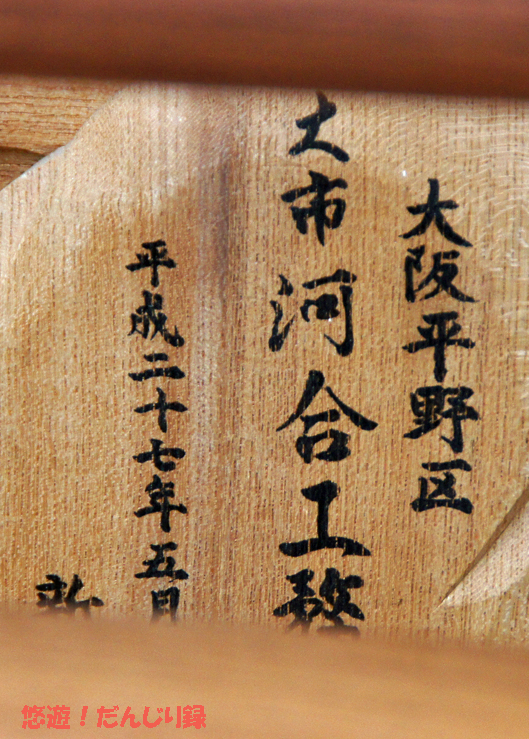 大阪平野区
大市 河合工務
平成二十七年五月
悠遊！だんじり録